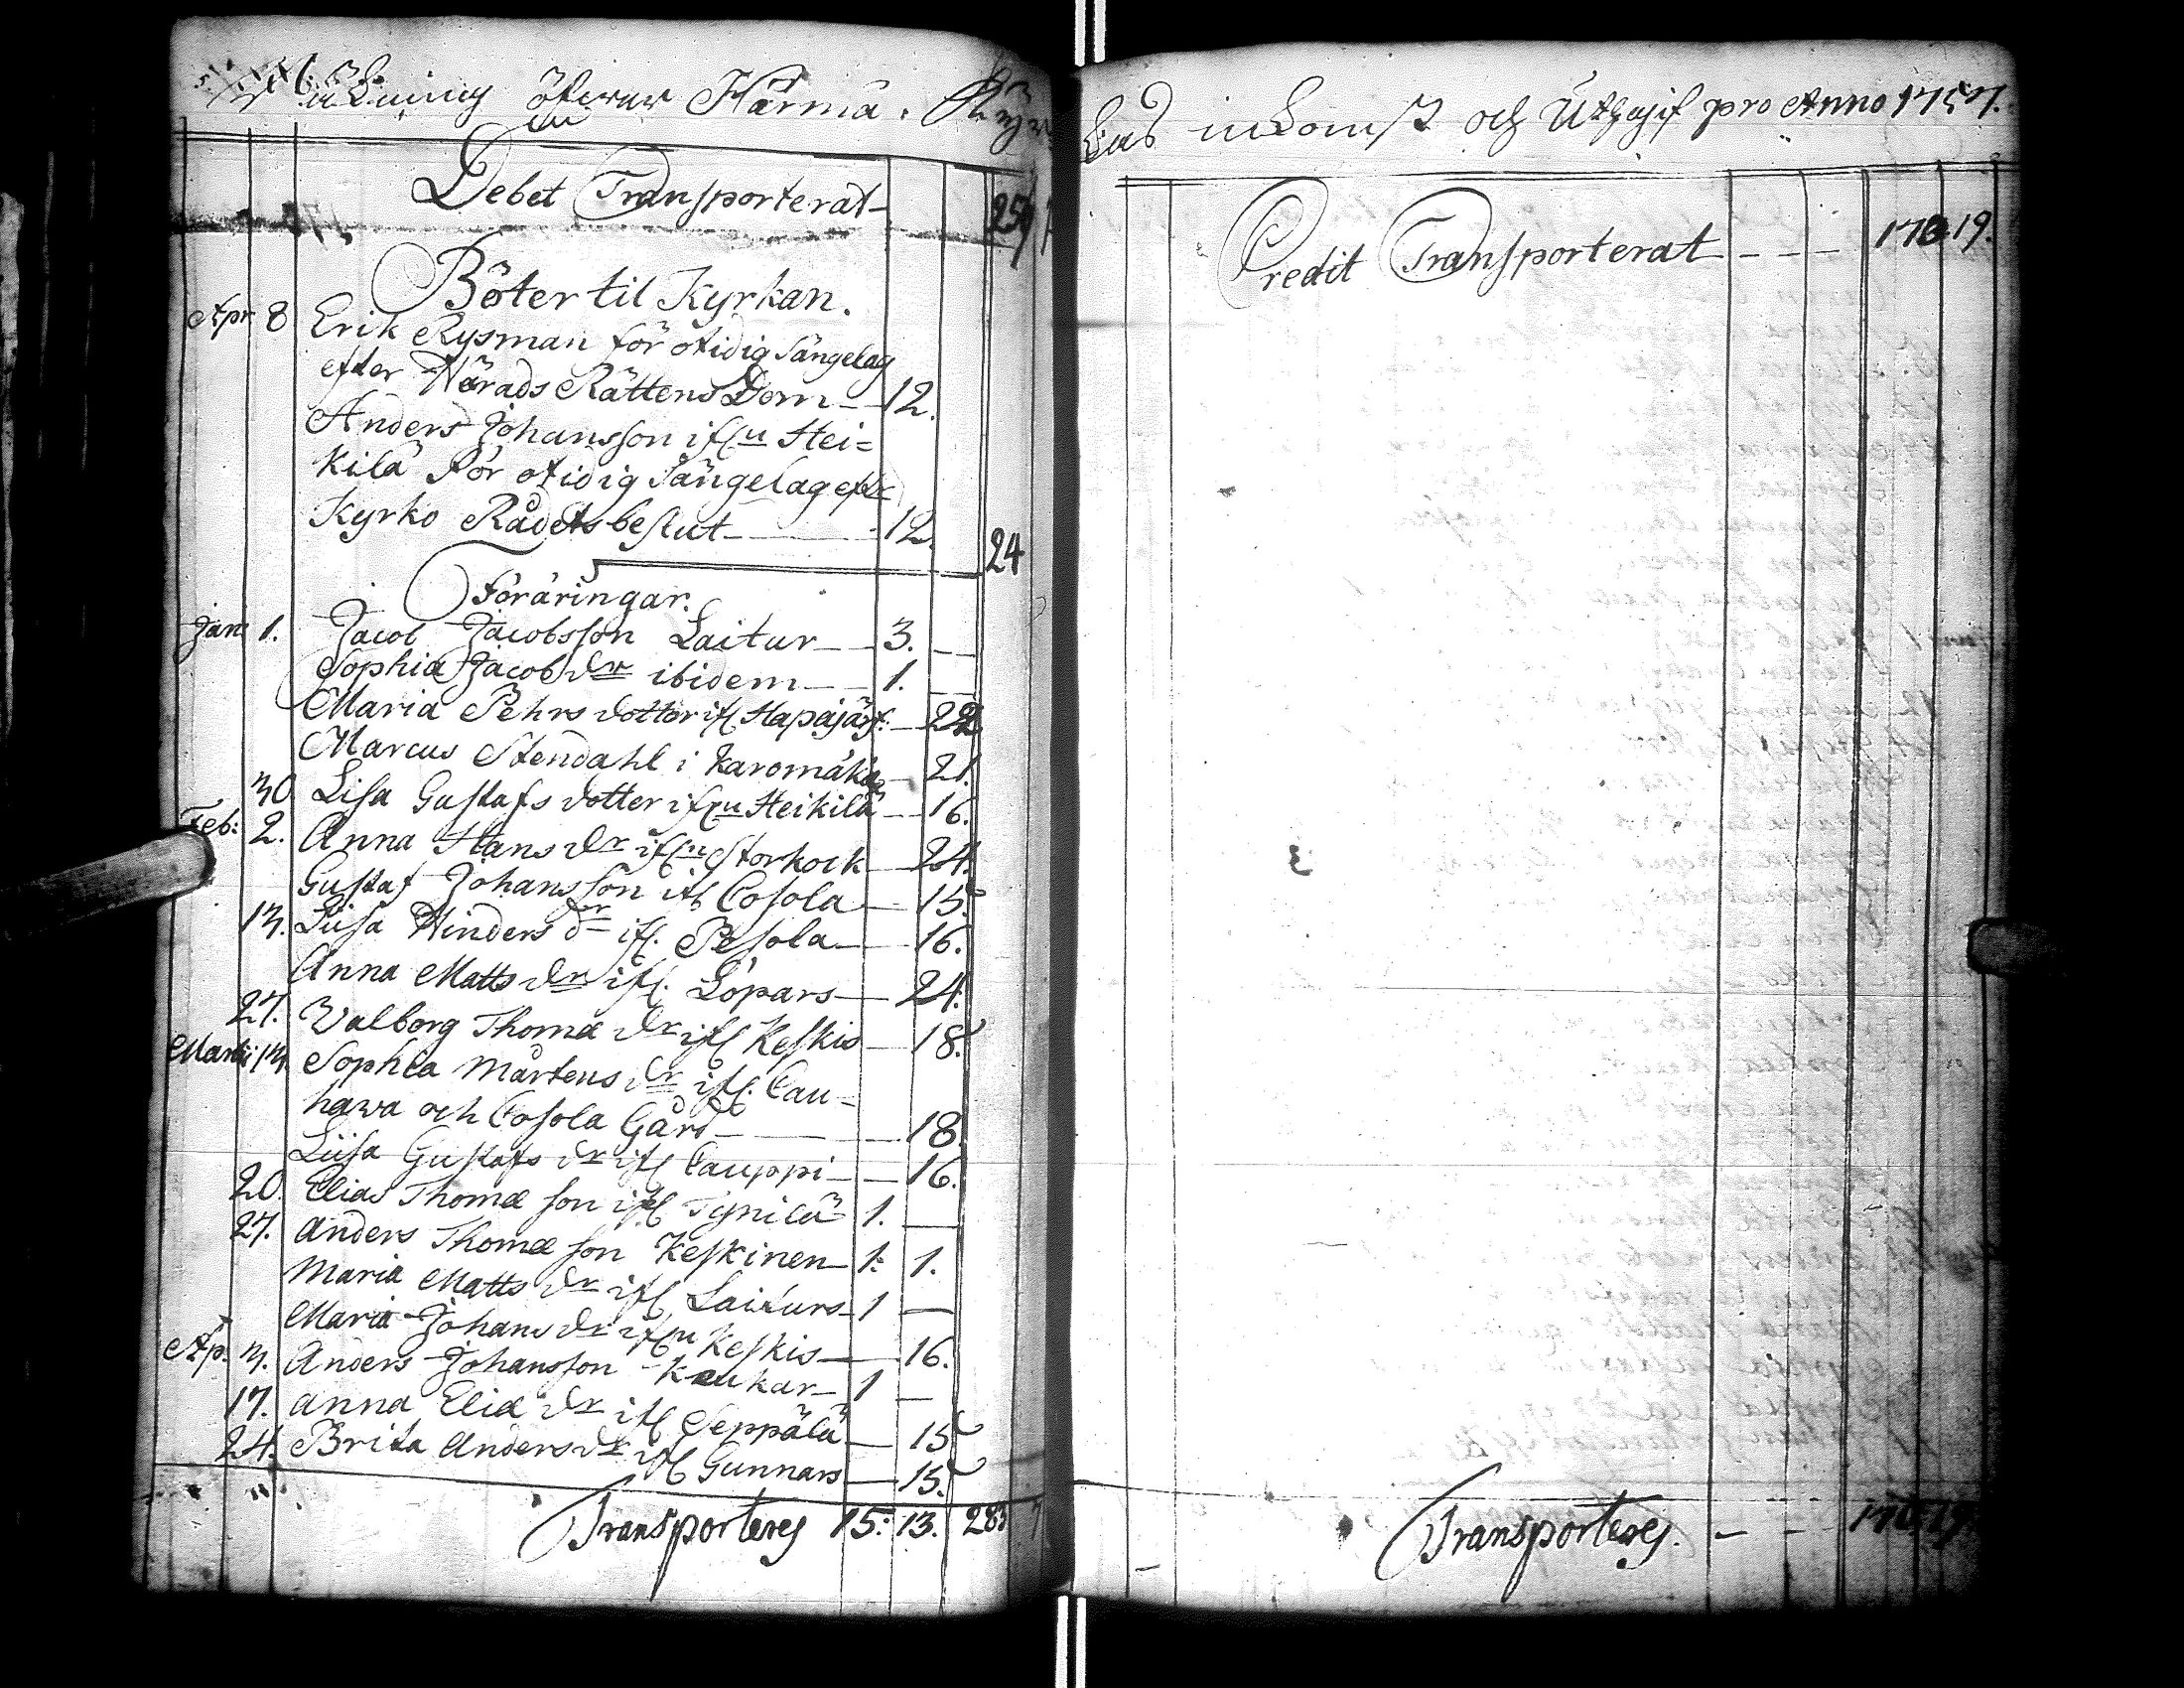 Räkning öfwer Härmä Kyr
Debet Transporterat 259
Böter til Kyrkan.
Apr 8 Erik Rysman för otidig Sängelag
efter Härads Rättens Dom 12.
Anders Johansson ifrn Hei=
kilä för otidig Sängelag eft
Kyrko Rådets beslut 12. 24
Föräringar.
Jan 1. Jacob Jacobsson Laitur 3.
Sophia Jacobsdr ibidem 1.
Maria Pehrs dotter ifr Hapajärf: 22
Marcus Stendahl i Karomäki 21.
30 Lisa Gustafs dotter ifrn Heikilä 16.
Feb: 2. Anna Hans dr ifrn Storkock 24.
Gustaf Johansson ifr Cosola 15.
13. Liisa Hinders dr ifr. Pesola 16.
Anna Matts dr ifr. Löpars 24.
27. Walborg Thomæ dr ifr Keskis 18.
Martii 13. Sophia Mårtens dr ifr. Cau-
hawa och Cosola Gård 18.
Liisa Gustafs dr ifr Cauppi 16.
20. Elias Thomæ son ifr Tynilä 1.
27. Anders Thomæ son Keskinen 1: 1.
Maria Matts dr ifr Laiturs 1
Maria Johans dr ifrn Keskis 16.
Ap. 3. Anders Johansson Keukar 1
17. Anna Eliæ dr ifr Seppälä 15
24. Brita Anders dr ifr Gunnars 15.
Transporteres 15: 13. 283
kias inkomst och Uthgift pro Anno 1757.
Credit Transporterat 170 19.
Transporteres. 170 19